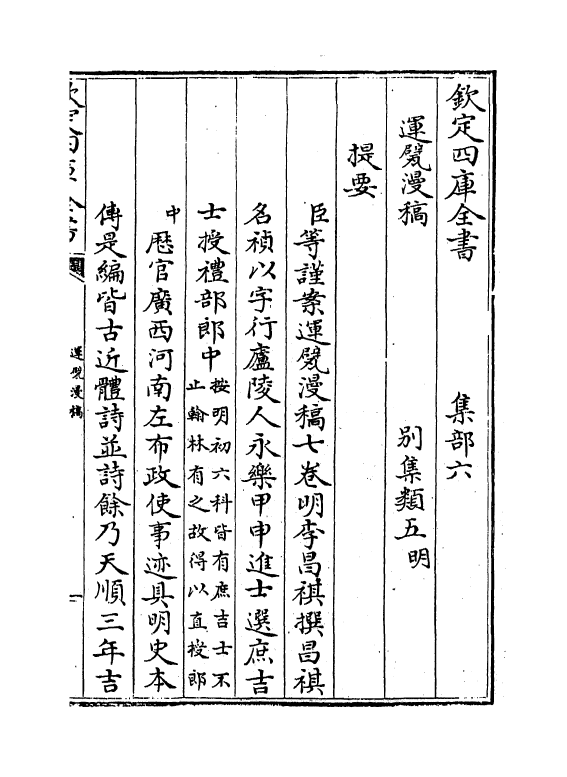 欽定四庫全書　集部六
運甓漫稿　別集類五明
提要
臣等謹案運甓漫稿七卷明李昌祺撰昌祺
名禎以字行廬陵人永樂甲申進士選庶吉
士授禮部郎中按明初六科皆有庶吉士不
止翰林有之故得以直授郎
中歷官廣西河南左布政使事迹具明史本
傳是編皆古近體詩並詩餘乃天順三年吉
欽定四庫全書
運甓漫稿
一